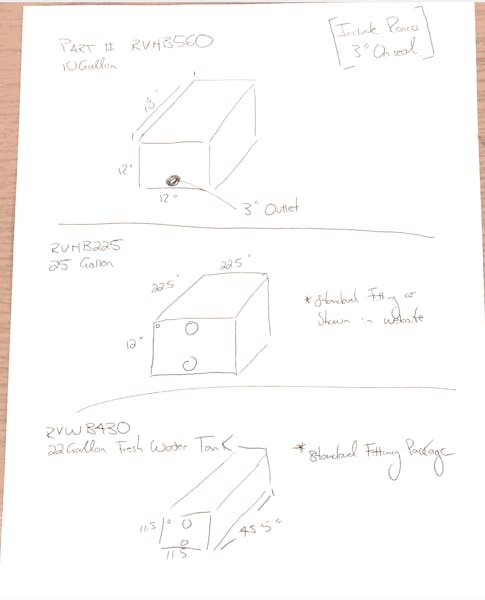 PART # RVHB560
10 Gallon
[Include Ronco
3" On seal]
18"
12"
12"
3" Outlet
RVHB225
25 Gallon
22.5"
22.5"
12"
*Standard Fitting as
Shown in website
RVWB430
22 Gallon Fresh Water Tank
*Standard Fitting Package
11.5
11.5
45.5"